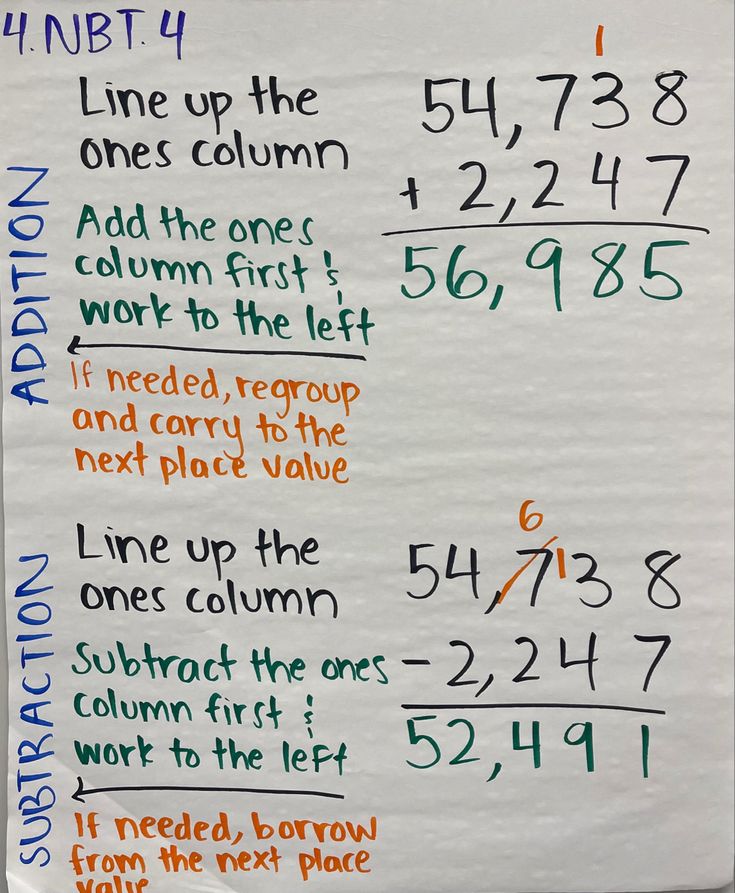 4.NBT.4
ADDITION
Line up the
ones column
Add the ones
column first &
work to the left
If needed, regroup
and carry to the
next place value
1
54,738
+ 2,247
56,985
SUBTRACTION
Line up the
ones column
Subtract the ones
column first &
work to the left
If needed, borrow
from the next place
value
6
54,7138
- 2,247
52,491